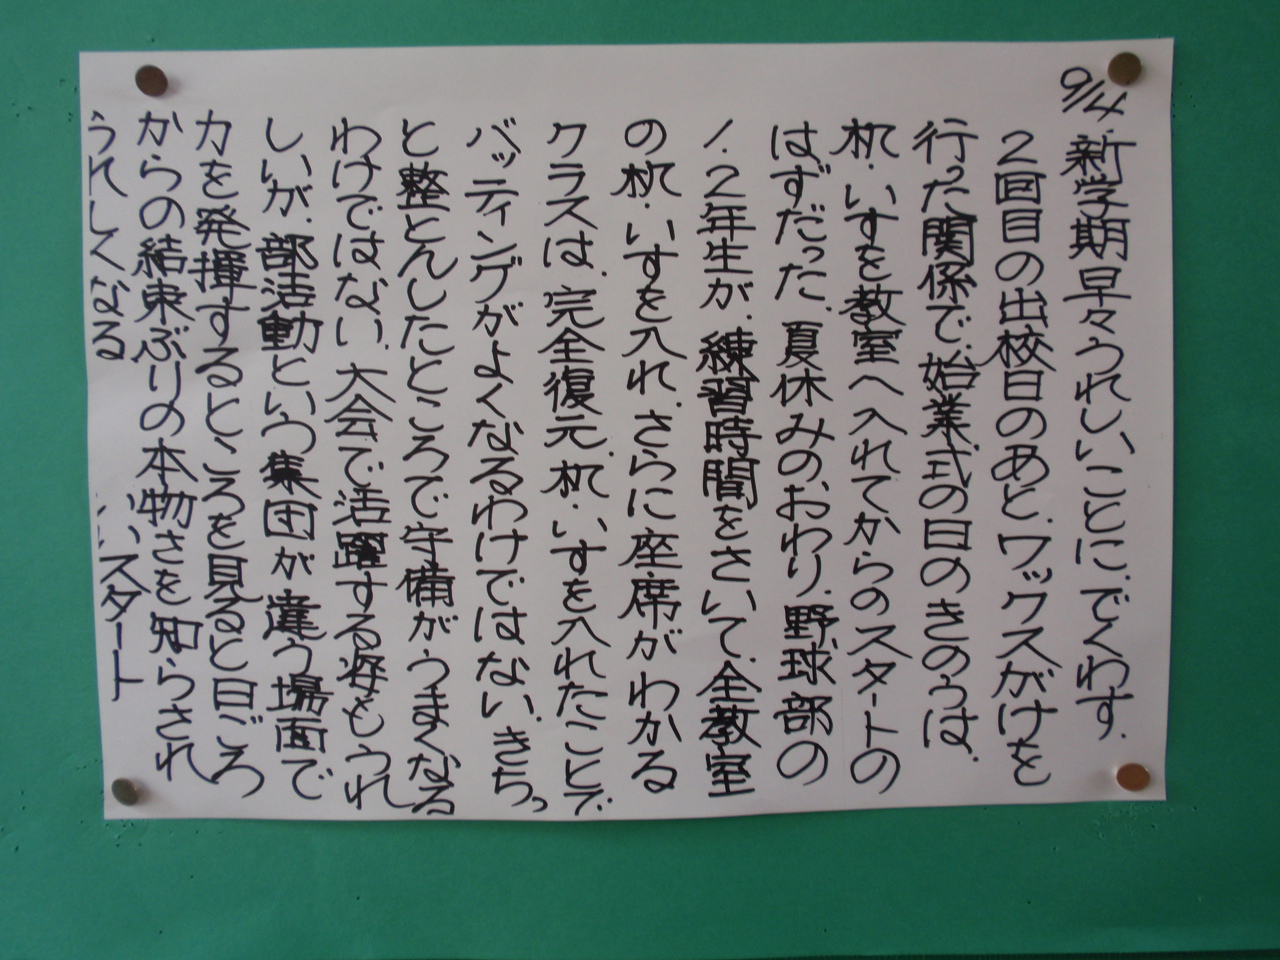 9/4 新学期早々うれしいことに、でくわす.
2回目の出校日のあと、ワックスがけを
行った関係で、始業式の日のきのうは、
机・いすを教室へ入れてからのスタートの
はずだった。夏休みのおわり、野球部の
1.2年生が、練習時間をさいて、全教室
の机・いすを入れ、さらに座席がわかる
クラスは、完全復元。机・いすを入れたことで
バッティングがよくなるわけではない。きちっ
と整とんしたところで守備がうまくなる
わけではない。大会で活躍する姿もうれ
しいが、部活動という集団が違う場面で
力を発揮するところを見ると日ごろ
からの結束ぶりの本物さを知らされ
うれしくなる いいスタート